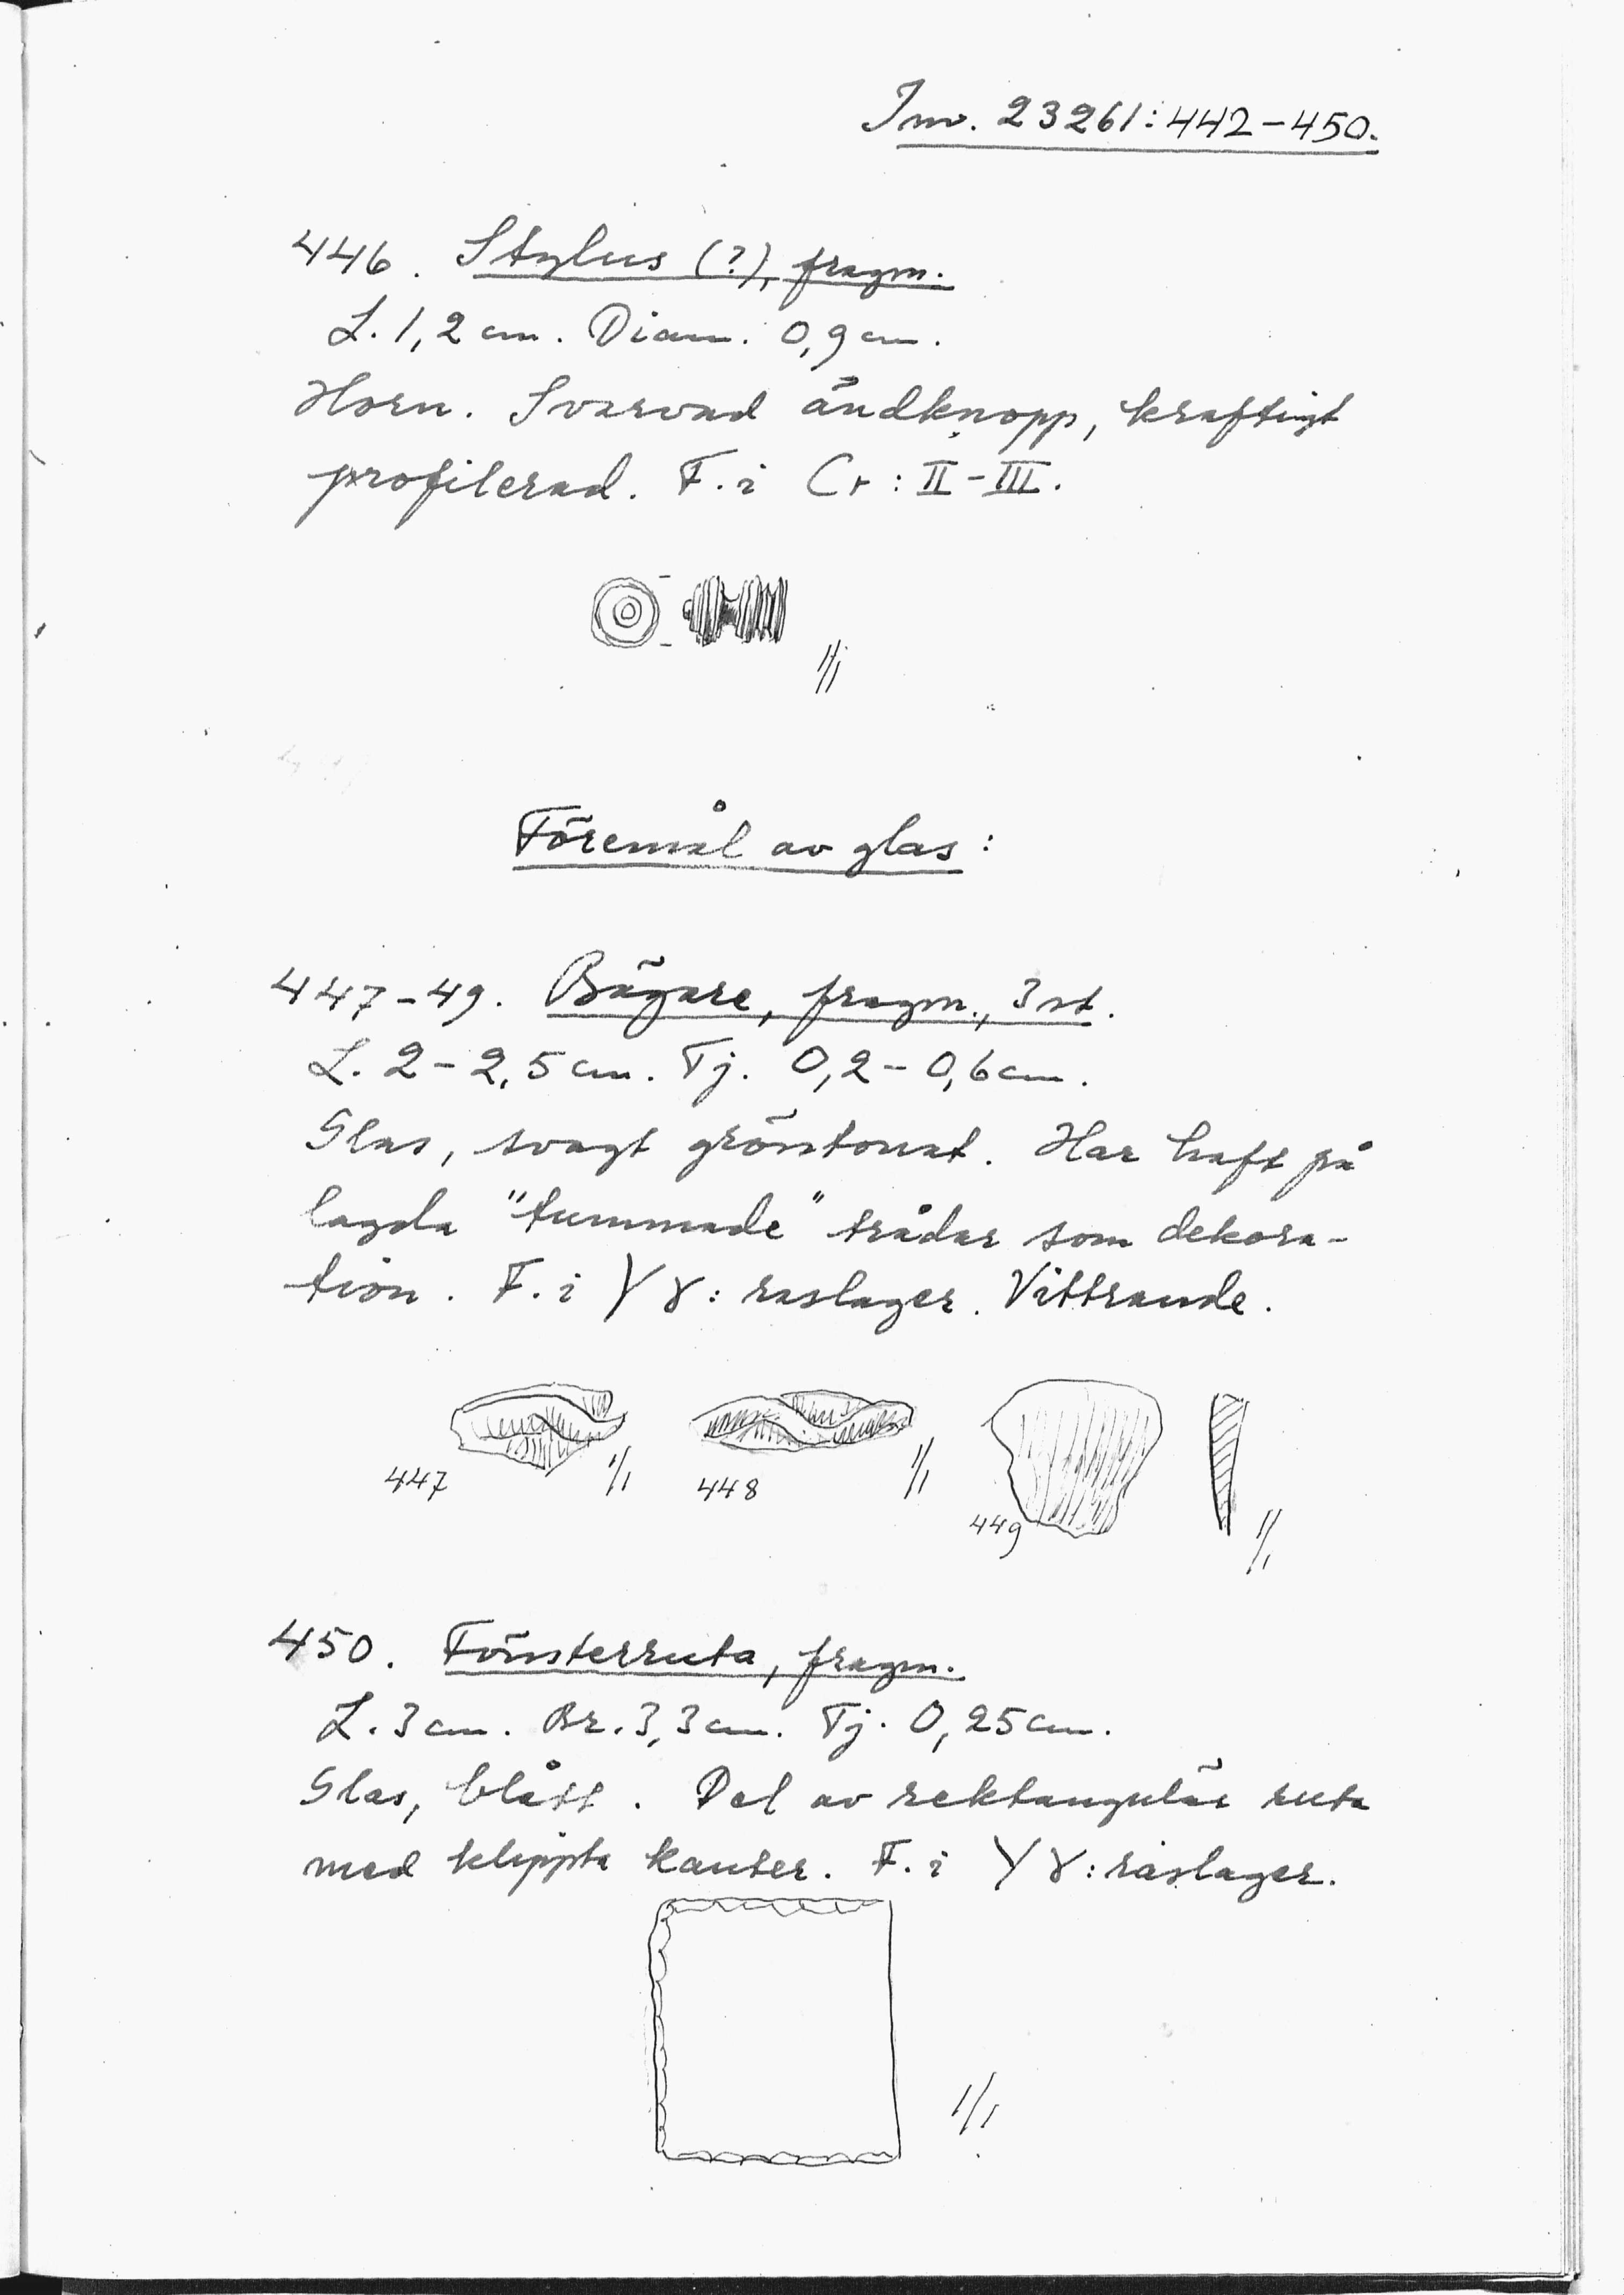 Inv. 23261:442-450.
446. Stylus (?), fragm.
L. 1,2 cm. Diam. 0,9 cm.
Horn. Svarvad ändknopp, kraftigt
profilerad. F. i Cr: II-III.
1/1
Föremål av glas:
447-49. Bägare, fragm., 3 st.
L. 2-2,5 cm. Tj. 0,2-0,6 cm.
Glas, svagt gröntonat. Har haft på
lagda "tummade" trådar som dekora-
tion. F. i Yγ: raslager. Vittrande.
447 1/1 448 1/1 449 1/1
450. Fönsterruta, fragm.
L. 3 cm. Br. 3,3 cm. Tj. 0,25 cm.
Glas, blått. Del av rektangulär ruta
med klippta kanter. F. i Yγ: raslager.
1/1